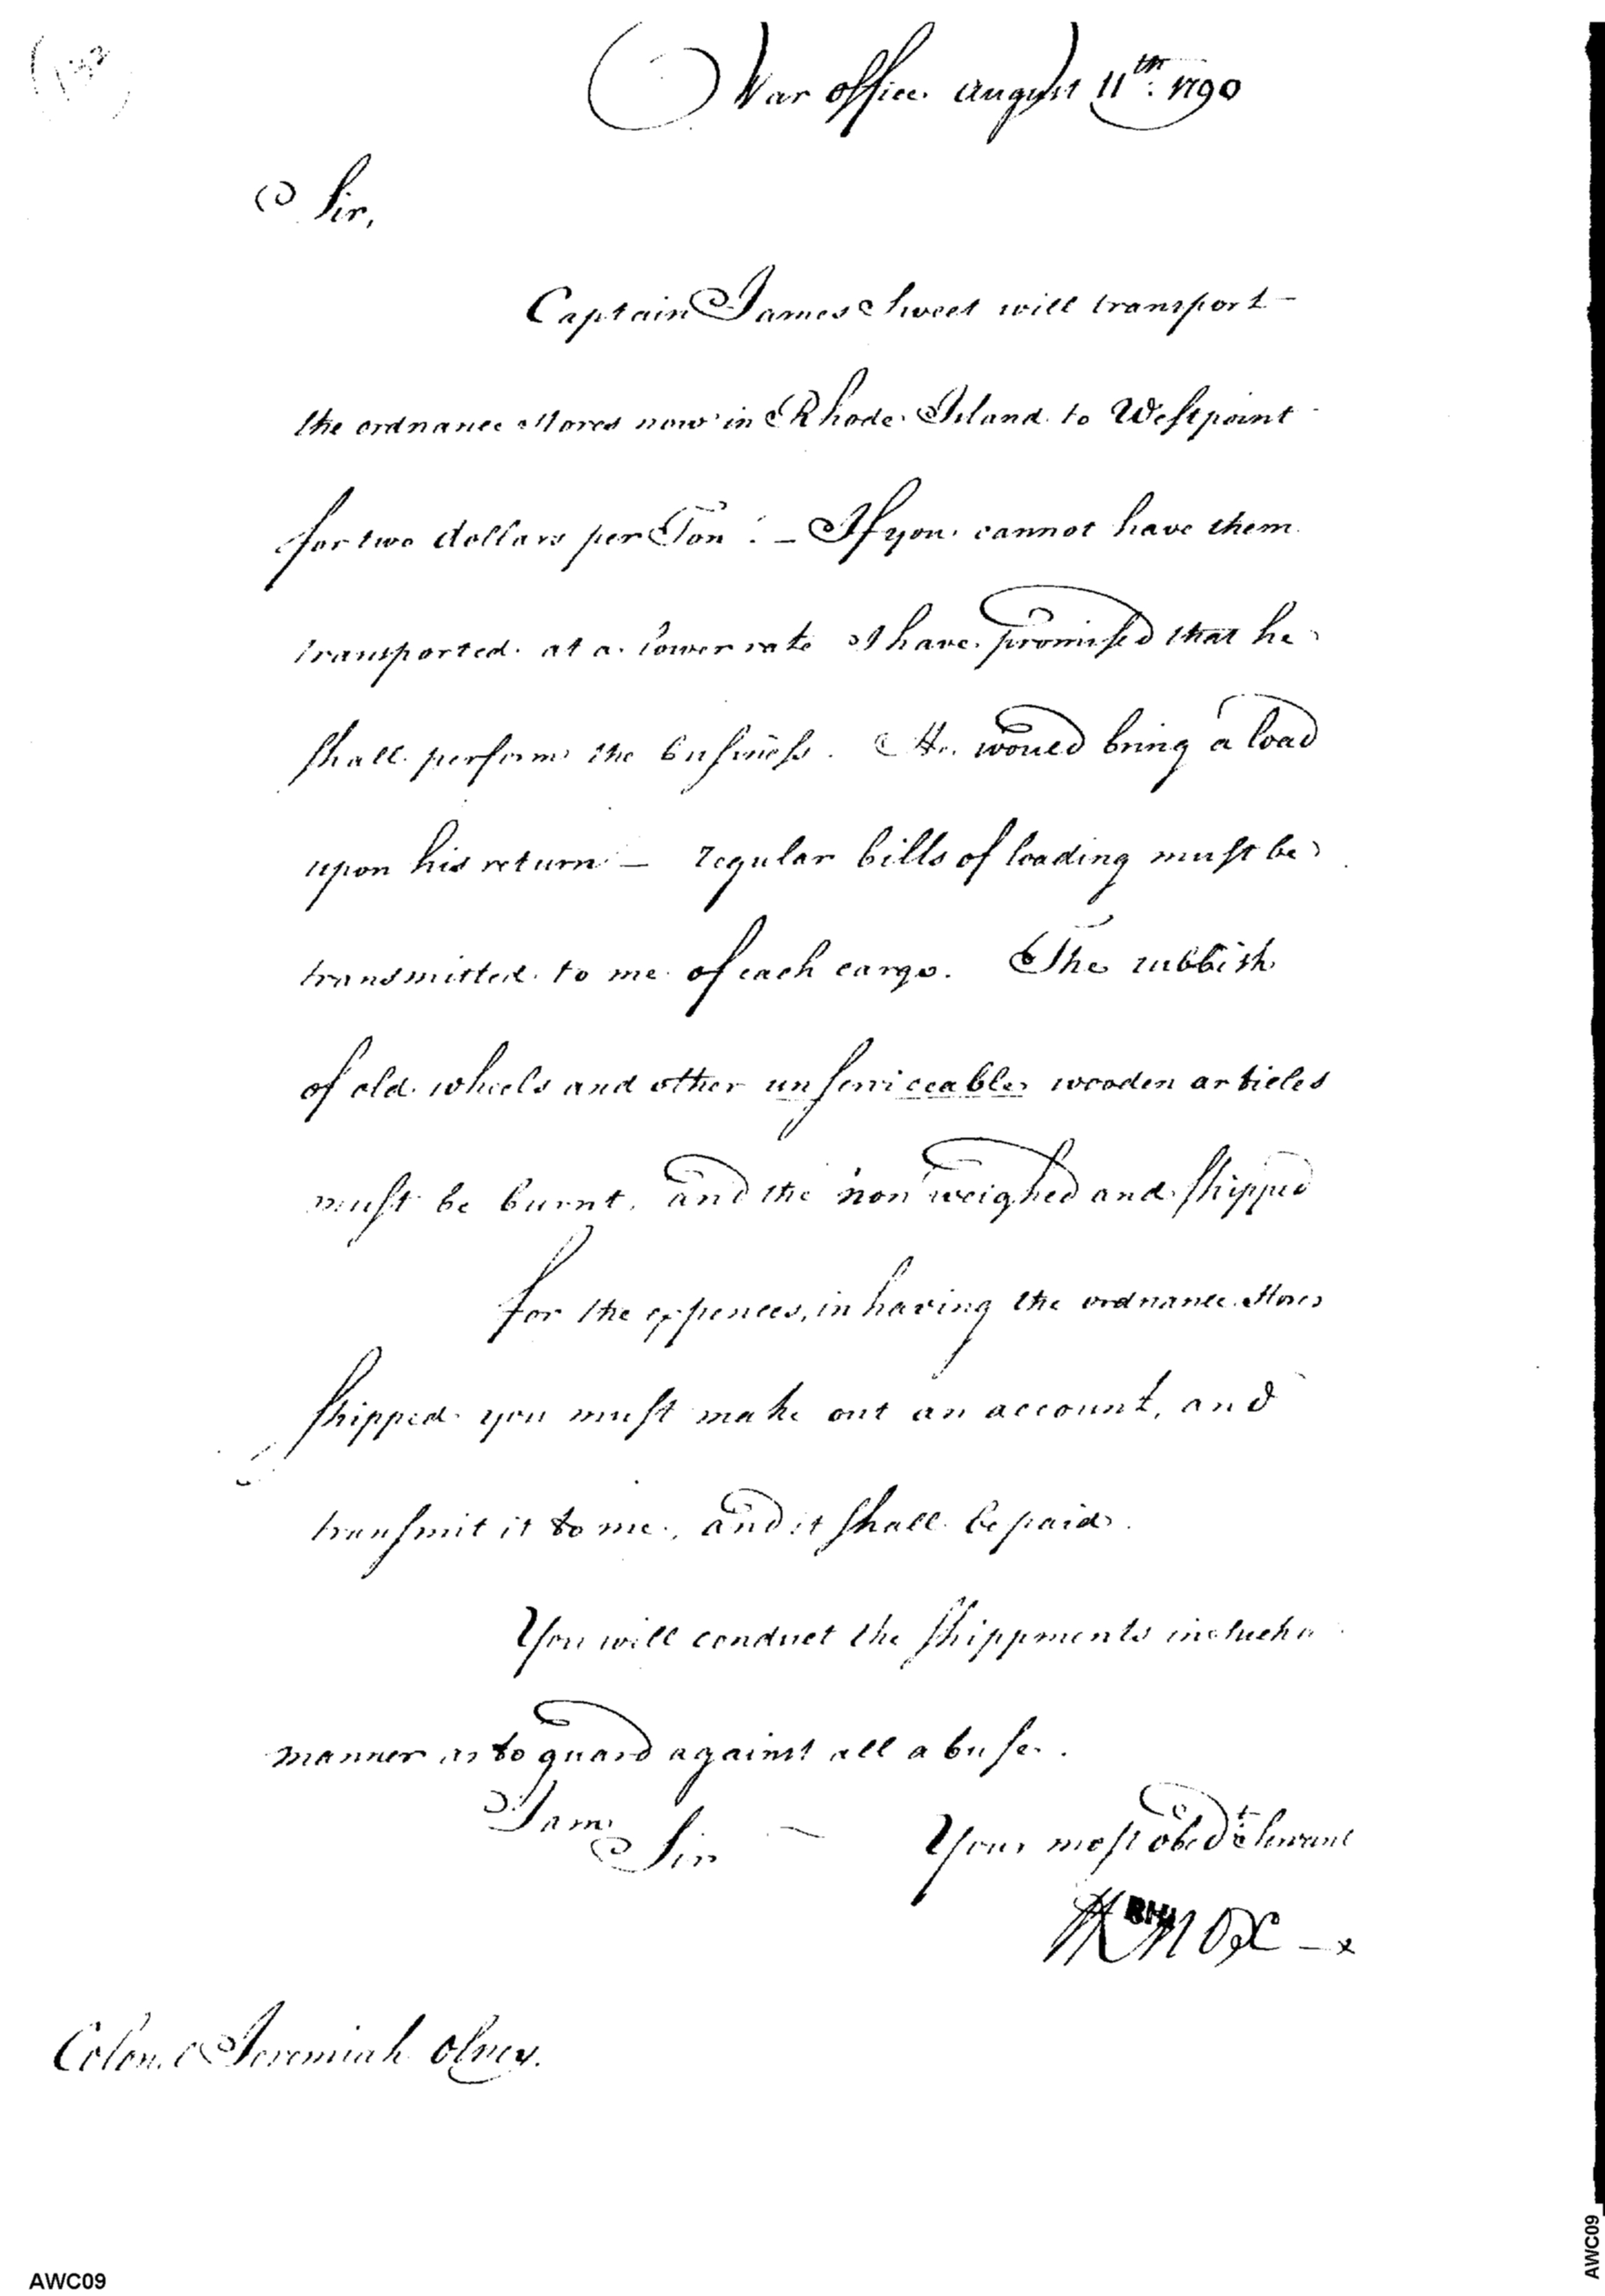 (132)
War office August 11th. 1790
Sir,
Captain James Sweet will transport –
the ordnance stores now in Rhode Island to Westpoint
for two dollars per Ton. – If you cannot have them
transported at a lower rate I have promised that he
shall perform the business. He would bring a load
upon his return – regular bills of loading must be
transmitted to me of each cargo. The rubbish
of old wheels and other unserviceable wooden articles
must be burnt, and the iron weighed and shipped
for the expences, in having the ordnance stores
shipped you must make out an account, and
transmit it to me, and it shall be paid.
You will conduct the shippments in such a
manner as to guard against all abuse.
I am
Sir – Your most obedt servant
HKnox
Colonel Jeremiah Olney.
AWC09
AWC09